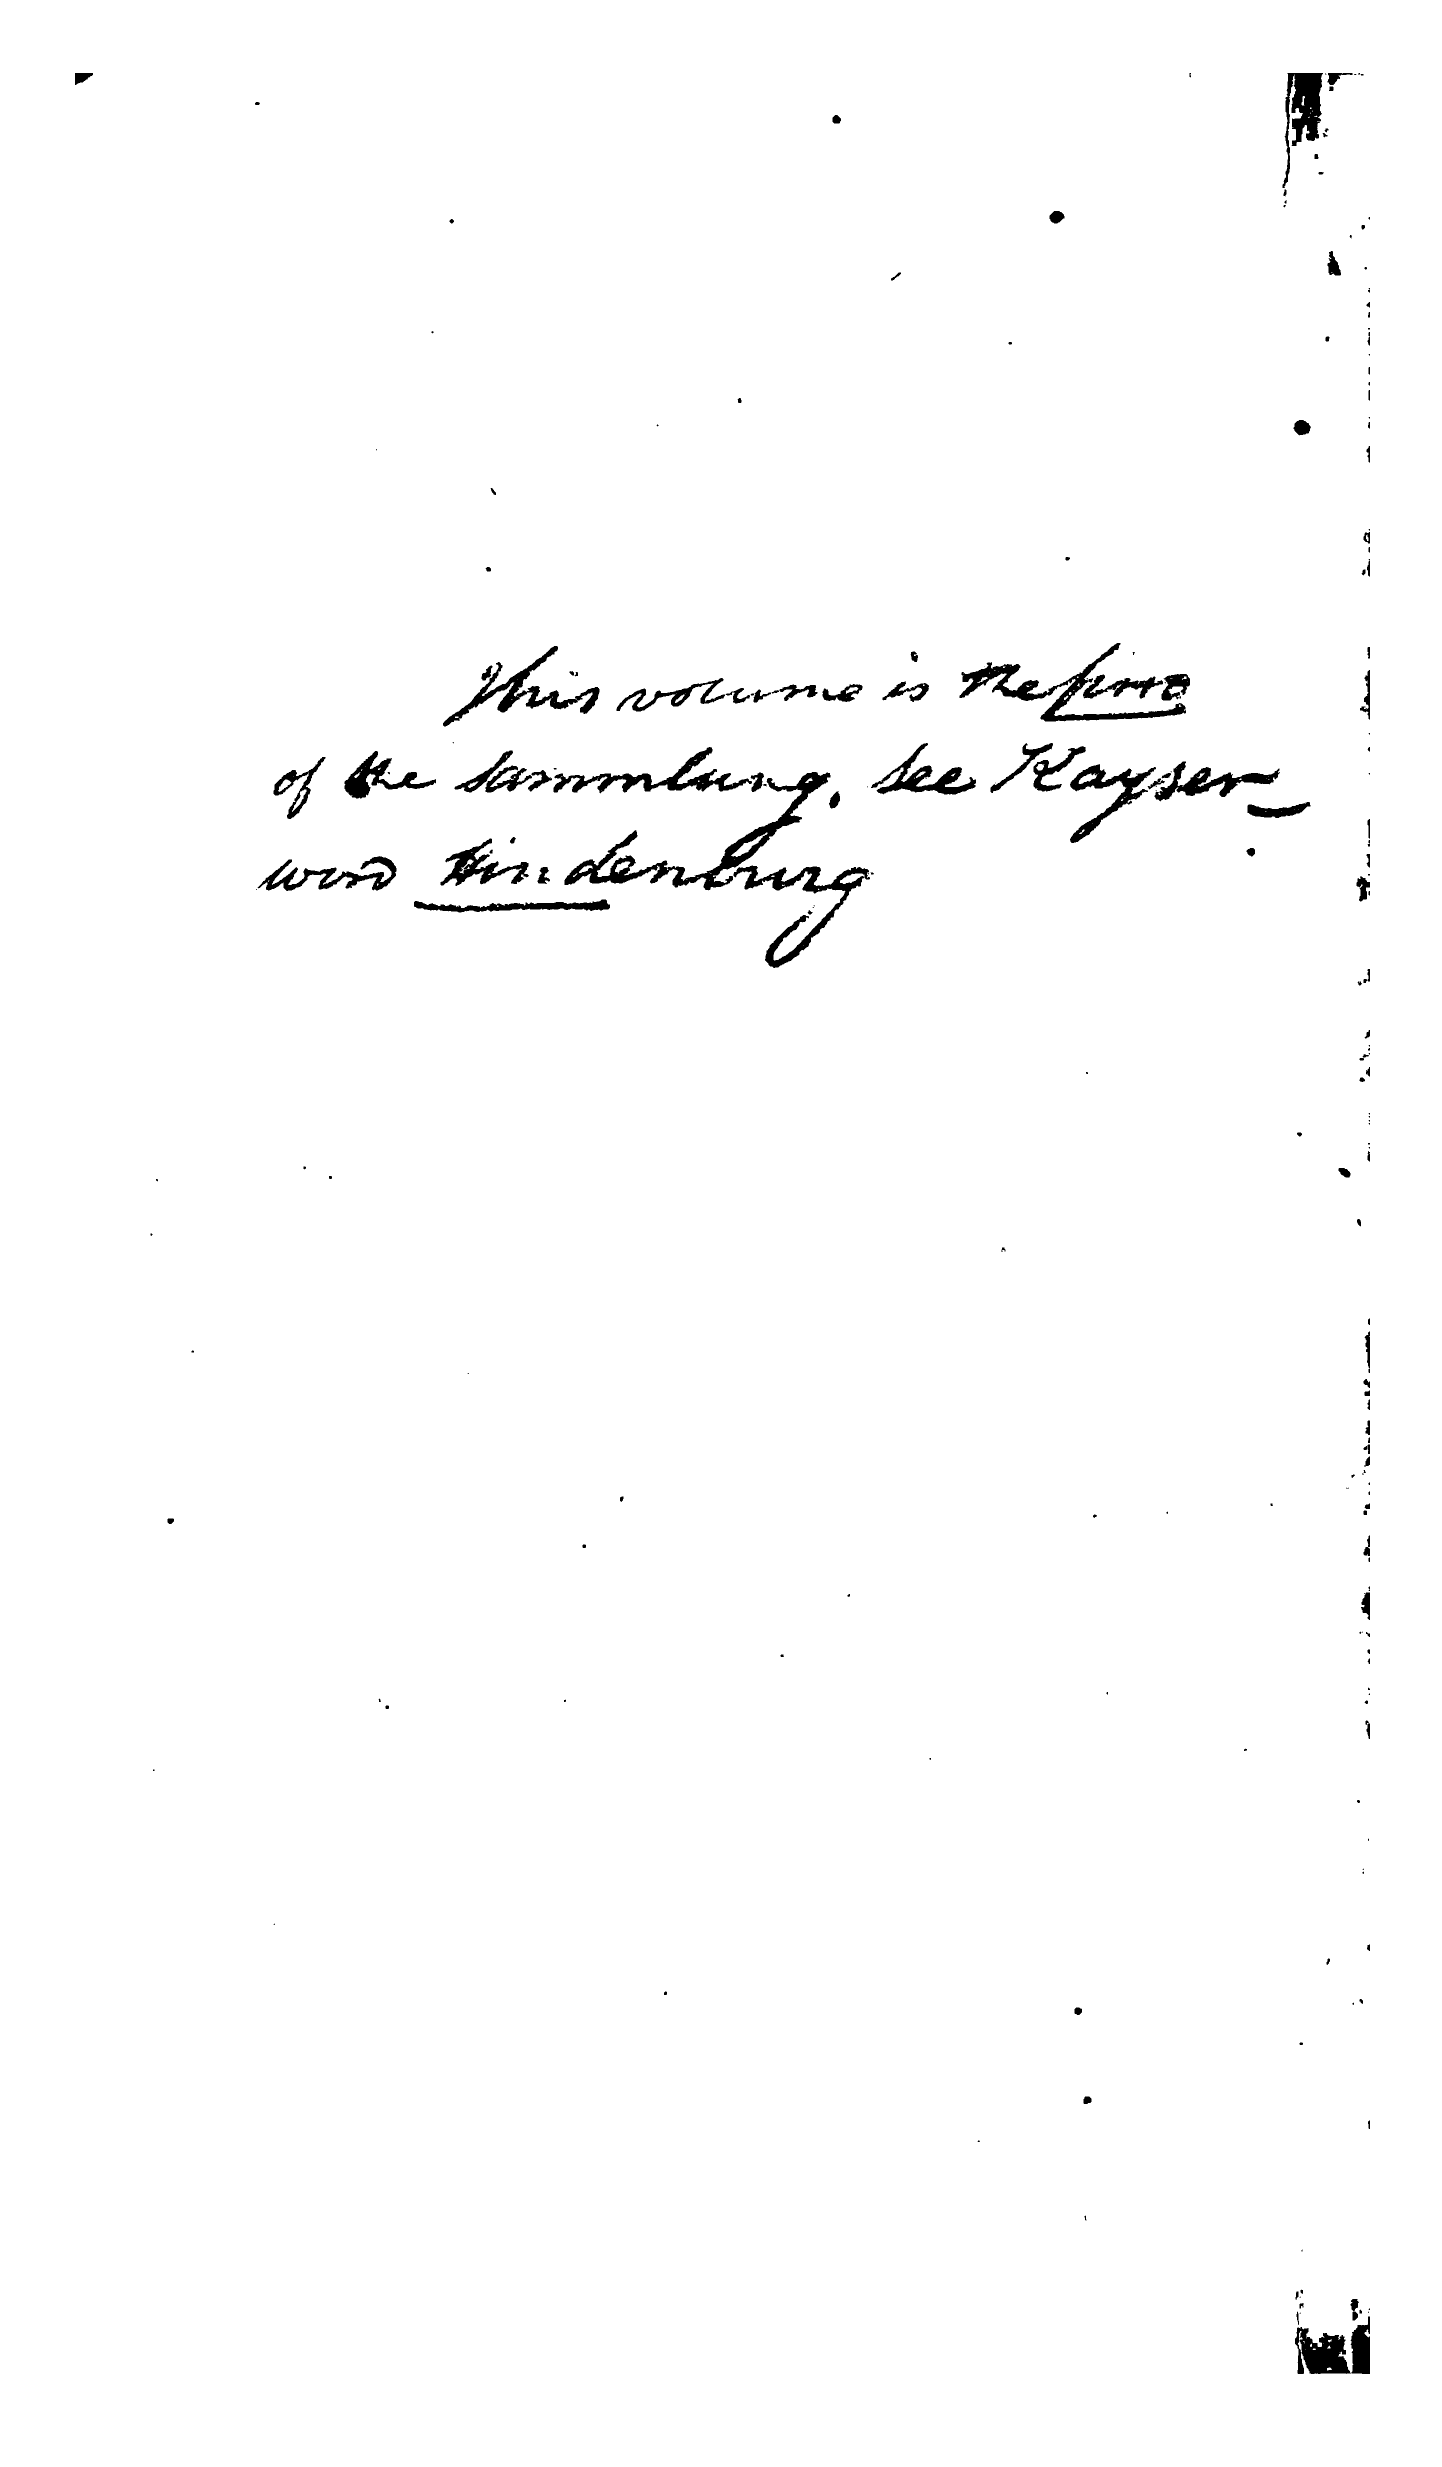 This volume is the first
of the Sammlung. See Kayser—
word Hindenburg